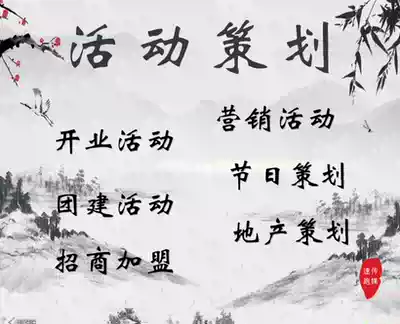 活动策划
开业活动
营销活动
团建活动
节日策划
招商加盟
地产策划
传媒